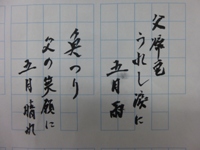 父帰宅
うれし涙に
五月雨
魚つり
父の笑顔に
五月晴れ